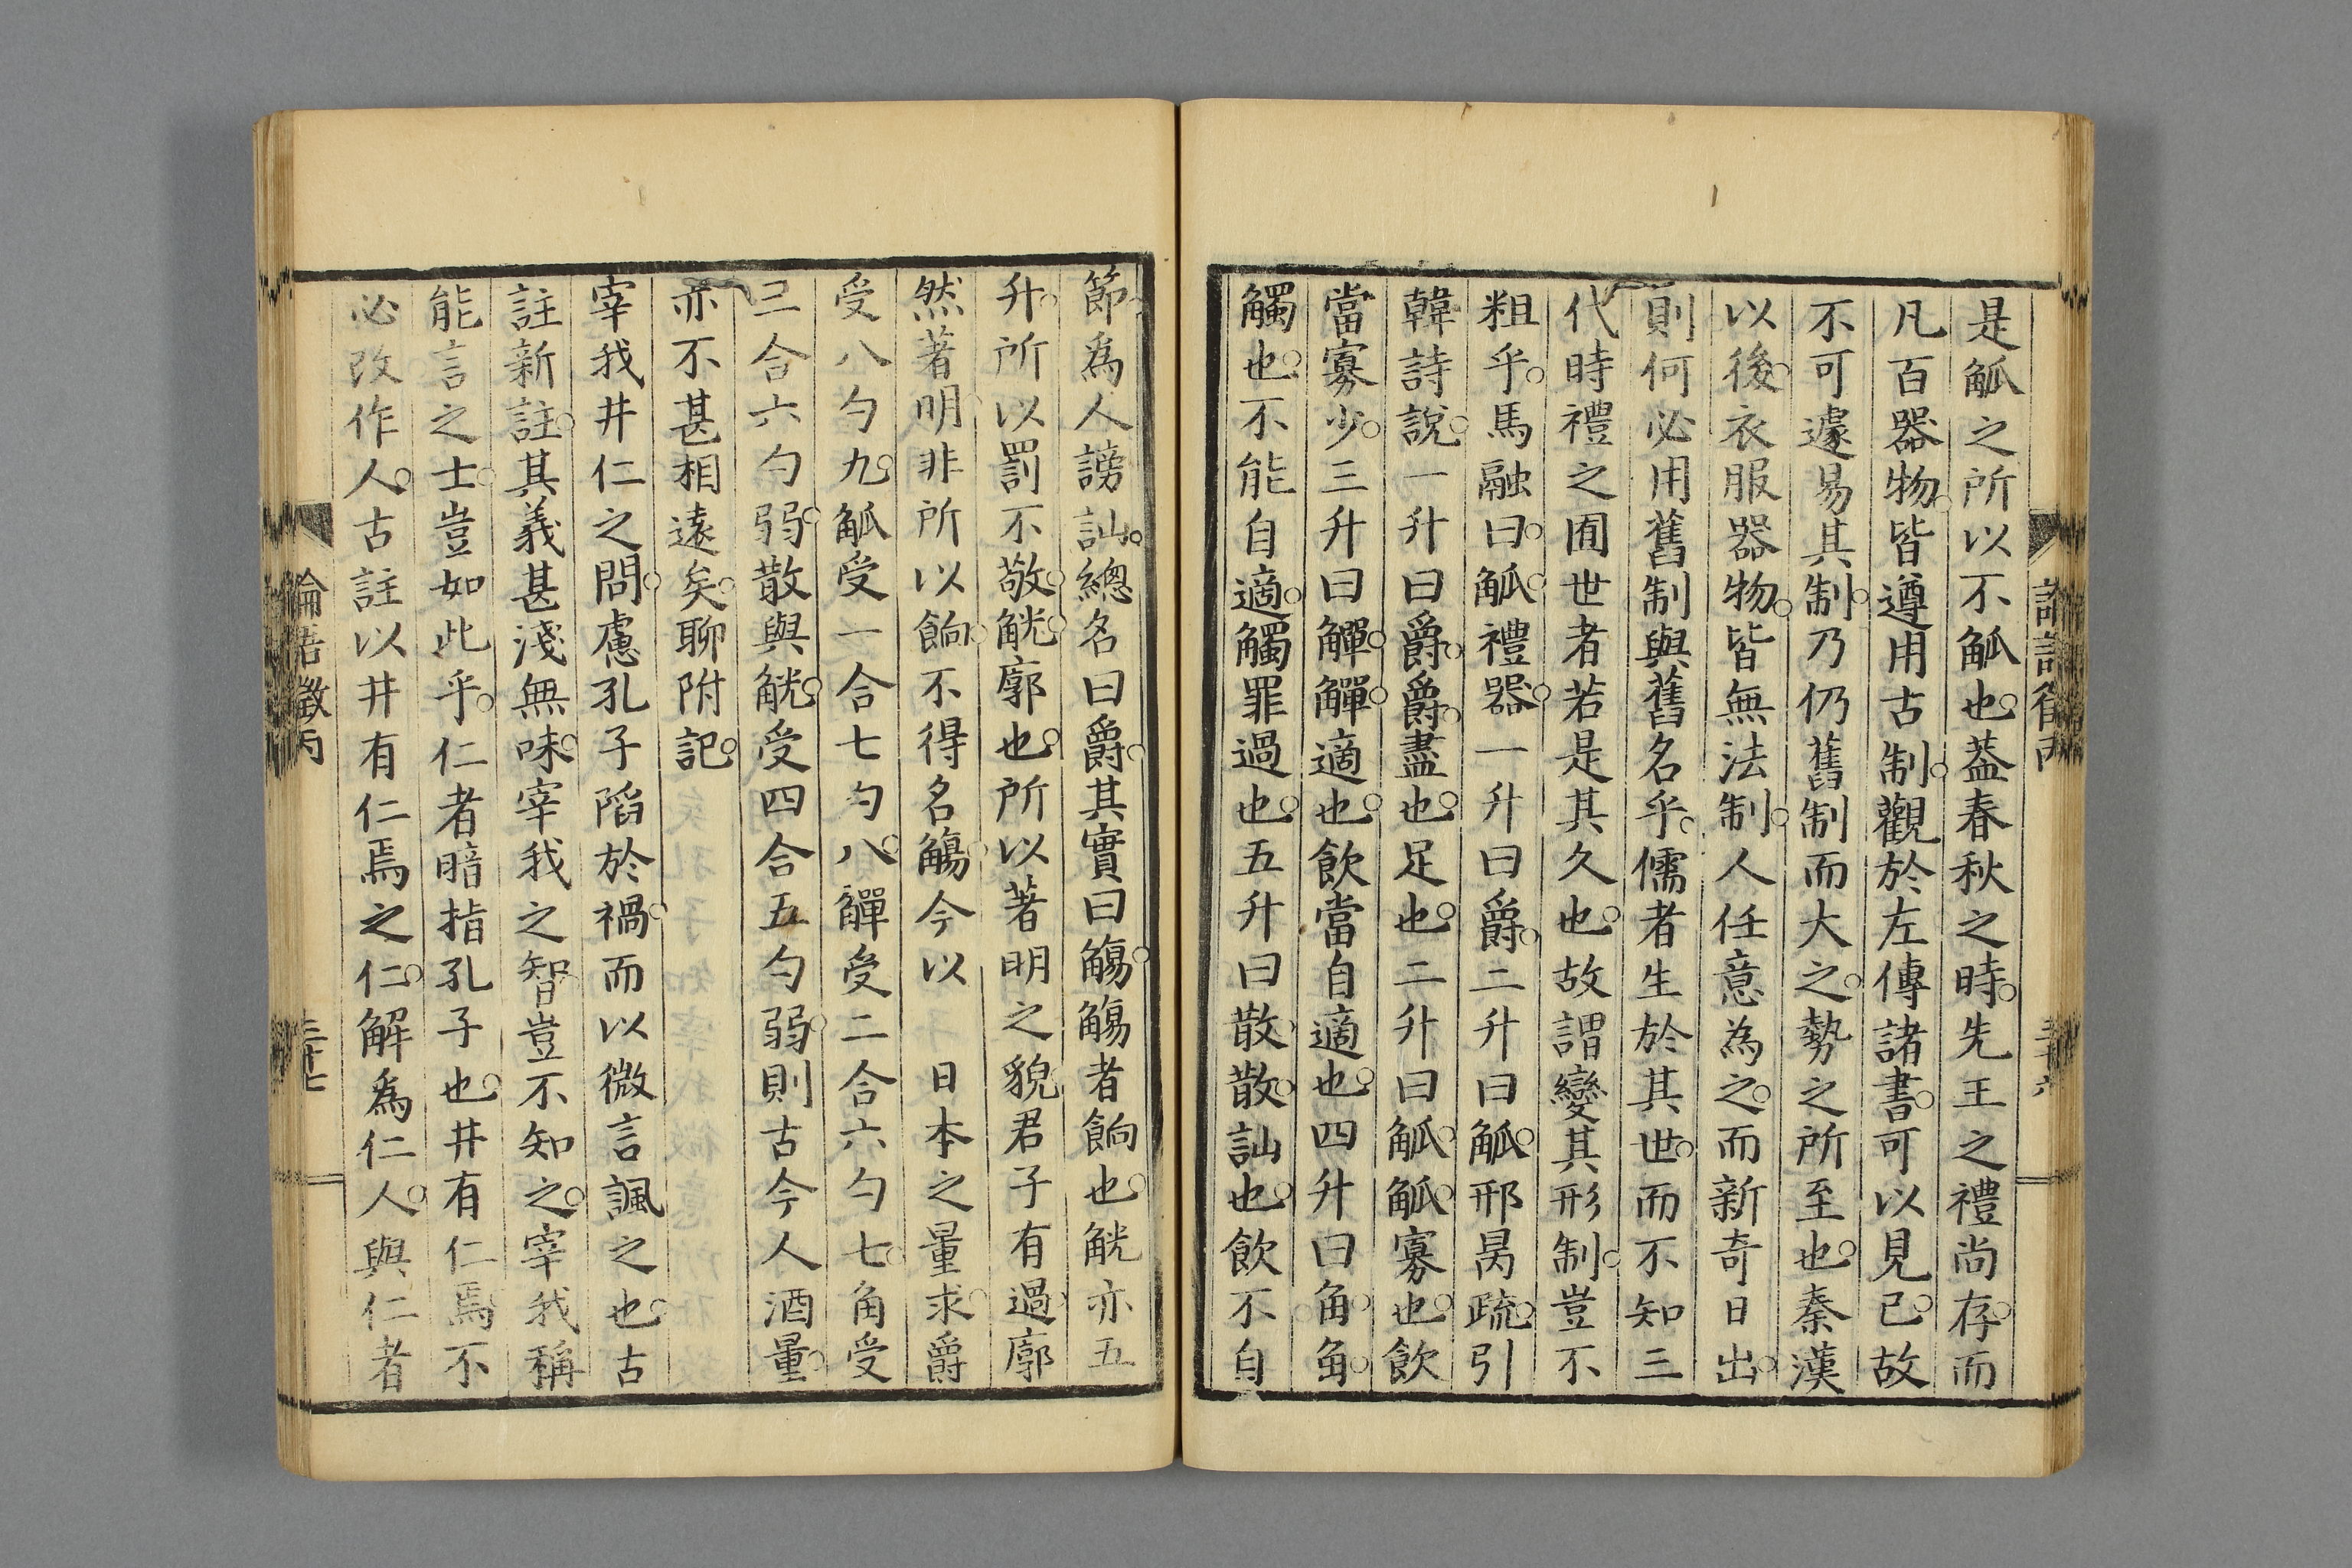 是觚之所以不觚也蓋春秋之時先王之禮尚存而
凡百器物皆遵用古制觀於左傳諸書可以見已故
不可遽易其制乃仍舊制而大之勢之所至也秦漢
以後衣服器物皆無法制人任意為之而新奇日出
則何必用舊制與舊名乎儒者生於其世而不知三
代時禮之囿世者若是其久也故謂變其形制豈不
粗乎馬融曰觚禮器一升曰爵二升曰觚邢昺疏引
韓詩說一升曰爵爵盡也足也二升曰觚觚寡也飲
當寡少三升曰觶觶適也飲當自適也四升曰角角
觸也不能自適觸罪過也五升曰散散訕也飲不自
節爲人謗訕總名曰爵其實曰觴觴者餉也觥亦五
升所以罰不敬觥廓也所以著明之貌君子有過廓
然著明非所以餉不得名觴今以 日本之量求爵
受八勺九觚受一合七勺八觶受二合六勺七角受
三合六勺弱散與觥受四合五勺弱則古今人酒量
亦不甚相遠矣聊附記
宰我井仁之問慮孔子陷於禍而以微言諷之也古
註新註其義甚淺無味宰我之智豈不知之宰我稱
能言之士豈如此乎仁者暗指孔子也井有仁焉不
必改作人古註以井有仁焉之仁解爲仁人與仁者
論語徵丙 三十七